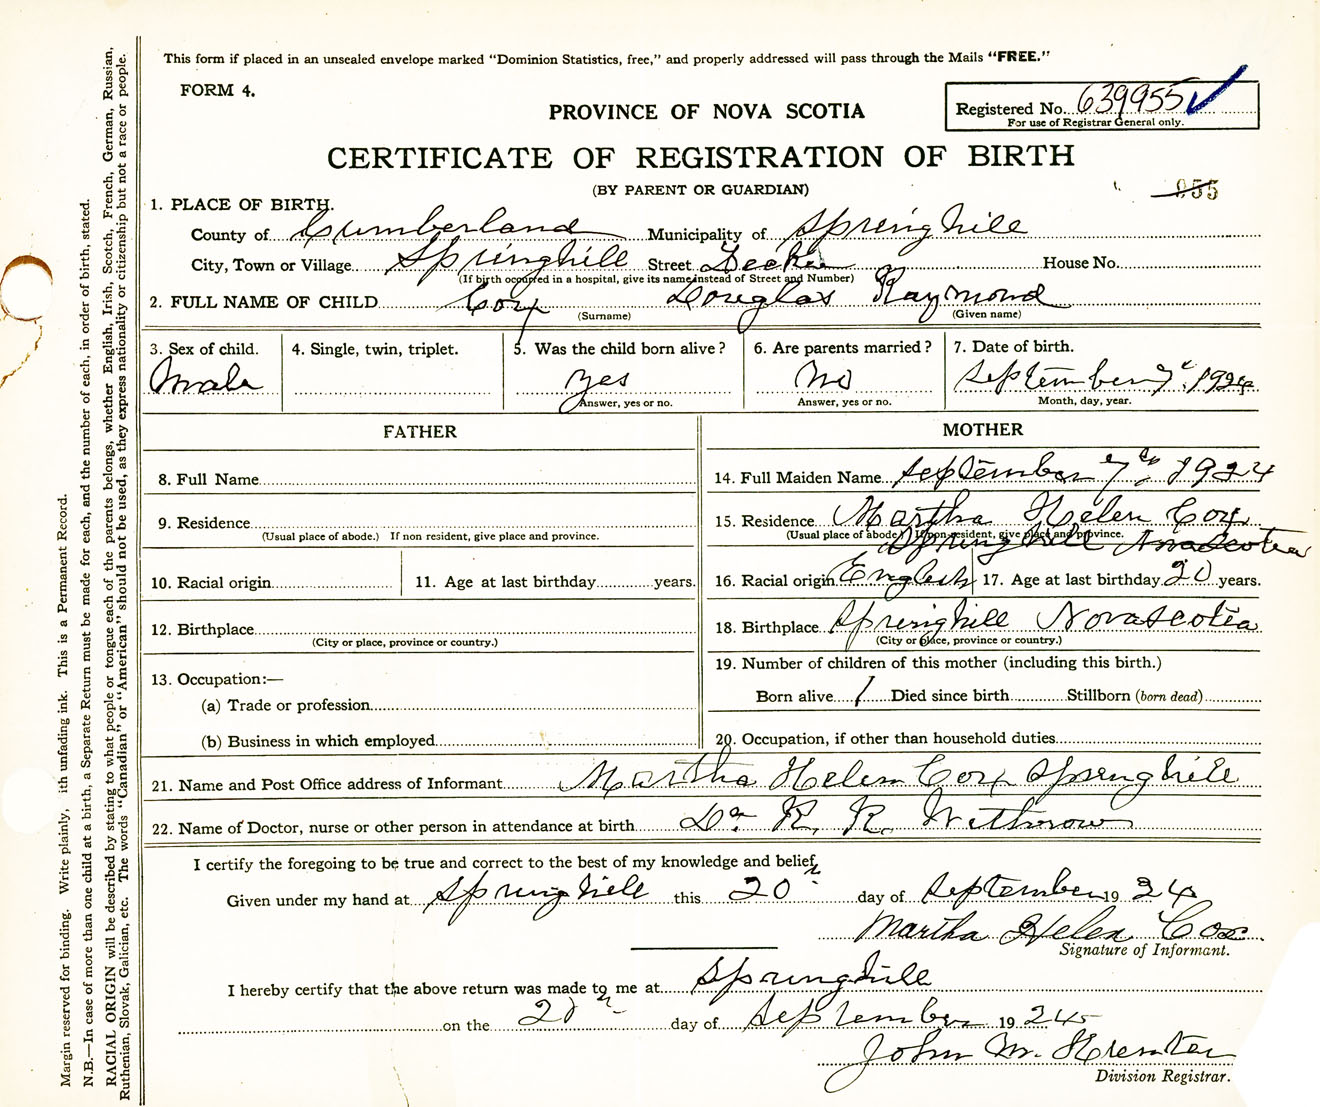 This form if placed in an unsealed envelope marked "Dominion Statistics, free," and properly addressed will pass through the Mails "FREE."
FORM 4.
PROVINCE OF NOVA SCOTIA
Registered No. 639955
For use of Registrar General only.
CERTIFICATE OF REGISTRATION OF BIRTH
(BY PARENT OR GUARDIAN)
955
1. PLACE OF BIRTH.
County of Cumberland Municipality of Springhill
City, Town or Village Springhill Street House No.
(If birth occurred in a hospital, give its name instead of Street and Number)
2. FULL NAME OF CHILD Cox Douglas Raymond
(Surname) (Given name)
3. Sex of child. 4. Single, twin, triplet. 5. Was the child born alive? 6. Are parents married? 7. Date of birth.
Male yes No September 7th 1924
Answer, yes or no. Answer, yes or no. Month, day, year.
FATHER MOTHER
8. Full Name 14. Full Maiden Name September 7th, 1924
9. Residence 15. Residence Martha Helen Cox
(Usual place of abode.) If non resident, give place and province. (Usual place of abode.) If non-resident, give place and province.
Springhill Nova Scotia
10. Racial origin 11. Age at last birthday years. 16. Racial origin English 17. Age at last birthday 20 years.
12. Birthplace 18. Birthplace Springhill Nova Scotia
(City or place, province or country.) (City or place, province or country.)
19. Number of children of this mother (including this birth.)
13. Occupation:—
Born alive 1 Died since birth Stillborn (born dead)
(a) Trade or profession
(b) Business in which employed 20. Occupation, if other than household duties
21. Name and Post Office address of Informant Martha Helen Cox Springhill
22. Name of Doctor, nurse or other person in attendance at birth Dr. R. K. Withrow
I certify the foregoing to be true and correct to the best of my knowledge and belief,
Given under my hand at Springhill this 20th day of September 1924
Martha Helen Cox
Signature of Informant.
I hereby certify that the above return was made to me at Springhill
on the day of September 19 24
John M.
Division Registrar.
Margin reserved for binding. Write plainly, ith unfading ink. This is a Permanent Record.
N.B.—In case of more than one child at a birth, a Separate Return must be made for each, and the number of each, in order of birth, stated.
RACIAL ORIGIN will be described by stating to what people or tongue each of the parents belongs, whether English, Irish, Scotch, French, German, Russian,
Ruthenian, Slovak, Galician, etc. The words "Canadian" or "American" should not be used, as they express nationality or citizenship but not a race or people.